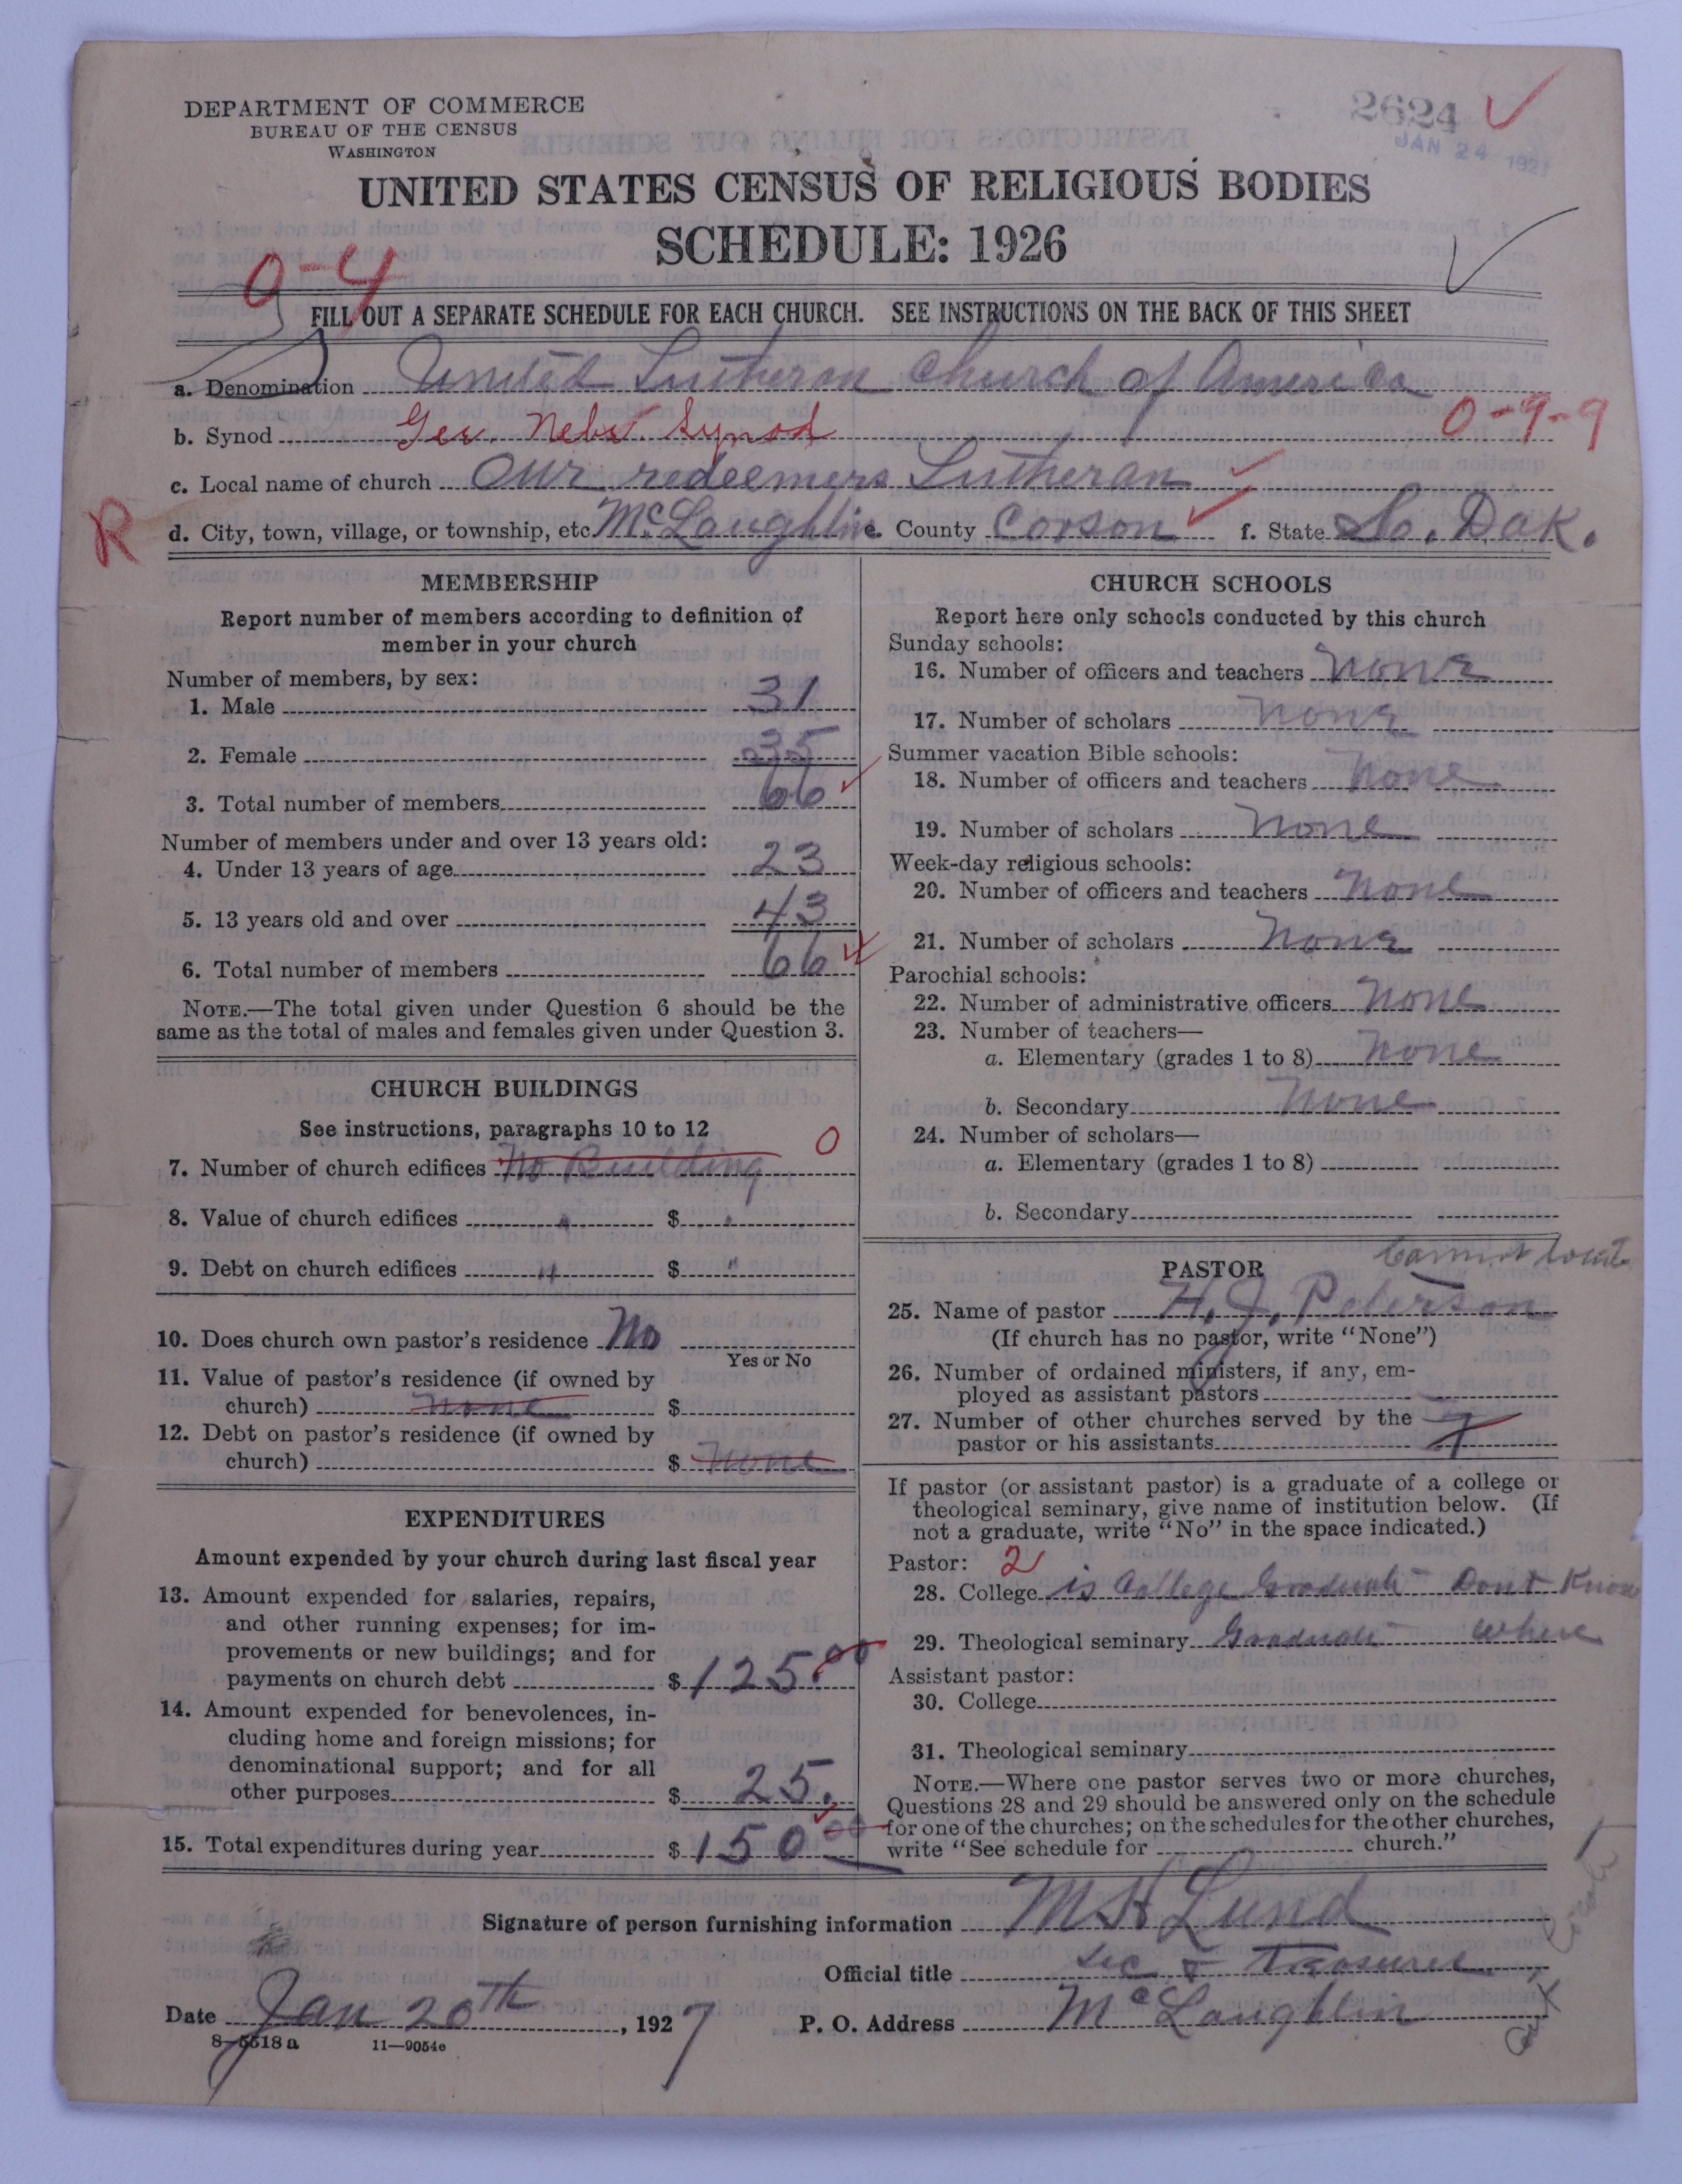 DEPARTMENT OF COMMERCE
BUREAU OF THE CENSUS
WASHINGTON
2624
JAN 24 192
UNITED STATES CENSUS OF RELIGIOUS BODIES
SCHEDULE: 1926
0-4
FILL OUT A SEPARATE SCHEDULE FOR EACH CHURCH. SEE INSTRUCTIONS ON THE BACK OF THIS SHEET
a. Denomination United Lutheran Church of America
b. Synod Ger. Nebr. Synod 0-9-9
c. Local name of church Our redeemers Lutheran
R
d. City, town, village, or township, etc. McLaughlin e. County Corson f. State So. Dak.
MEMBERSHIP
Report number of members according to definition of
member in your church
Number of members, by sex:
1. Male 31
2. Female 35
3. Total number of members 66
Number of members under and over 13 years old:
4. Under 13 years of age 23
5. 13 years old and over 43
6. Total number of members 66
NOTE.—The total given under Question 6 should be the
same as the total of males and females given under Question 3.
CHURCH BUILDINGS
See instructions, paragraphs 10 to 12
7. Number of church edifices No Building 0
8. Value of church edifices " $ "
9. Debt on church edifices " $ "
10. Does church own pastor's residence No
Yes or No
11. Value of pastor's residence (if owned by
church) None $
12. Debt on pastor's residence (if owned by
church) $ None
EXPENDITURES
Amount expended by your church during last fiscal year
13. Amount expended for salaries, repairs,
and other running expenses; for im-
provements or new buildings; and for
payments on church debt $ 125.00
14. Amount expended for benevolences, in-
cluding home and foreign missions; for
denominational support; and for all
other purposes $ 25.
15. Total expenditures during year $ 150 00
CHURCH SCHOOLS
Report here only schools conducted by this church
Sunday schools:
16. Number of officers and teachers None
17. Number of scholars None
Summer vacation Bible schools:
18. Number of officers and teachers None
19. Number of scholars None
Week-day religious schools:
20. Number of officers and teachers None
21. Number of scholars None
Parochial schools:
22. Number of administrative officers None
23. Number of teachers—
a. Elementary (grades 1 to 8) None
b. Secondary None
24. Number of scholars—
a. Elementary (grades 1 to 8)
b. Secondary
Cannot
PASTOR
25. Name of pastor H. J. Peterson
(If church has no pastor, write "None")
26. Number of ordained ministers, if any, em-
ployed as assistant pastors
27. Number of other churches served by the
pastor or his assistants
If pastor (or assistant pastor) is a graduate of a college or
theological seminary, give name of institution below. (If
not a graduate, write "No" in the space indicated.)
Pastor: 2
28. College is College Graduate Dont Know
29. Theological seminary Graduate where
Assistant pastor:
30. College
31. Theological seminary
NOTE.—Where one pastor serves two or more churches,
Questions 28 and 29 should be answered only on the schedule
for one of the churches; on the schedules for the other churches,
write "See schedule for church."
Signature of person furnishing information M H Lund
Official title Sec & Treasurer
Date Jan 20th, 1927 P. O. Address McLaughlin
8-5518a 11—9054e